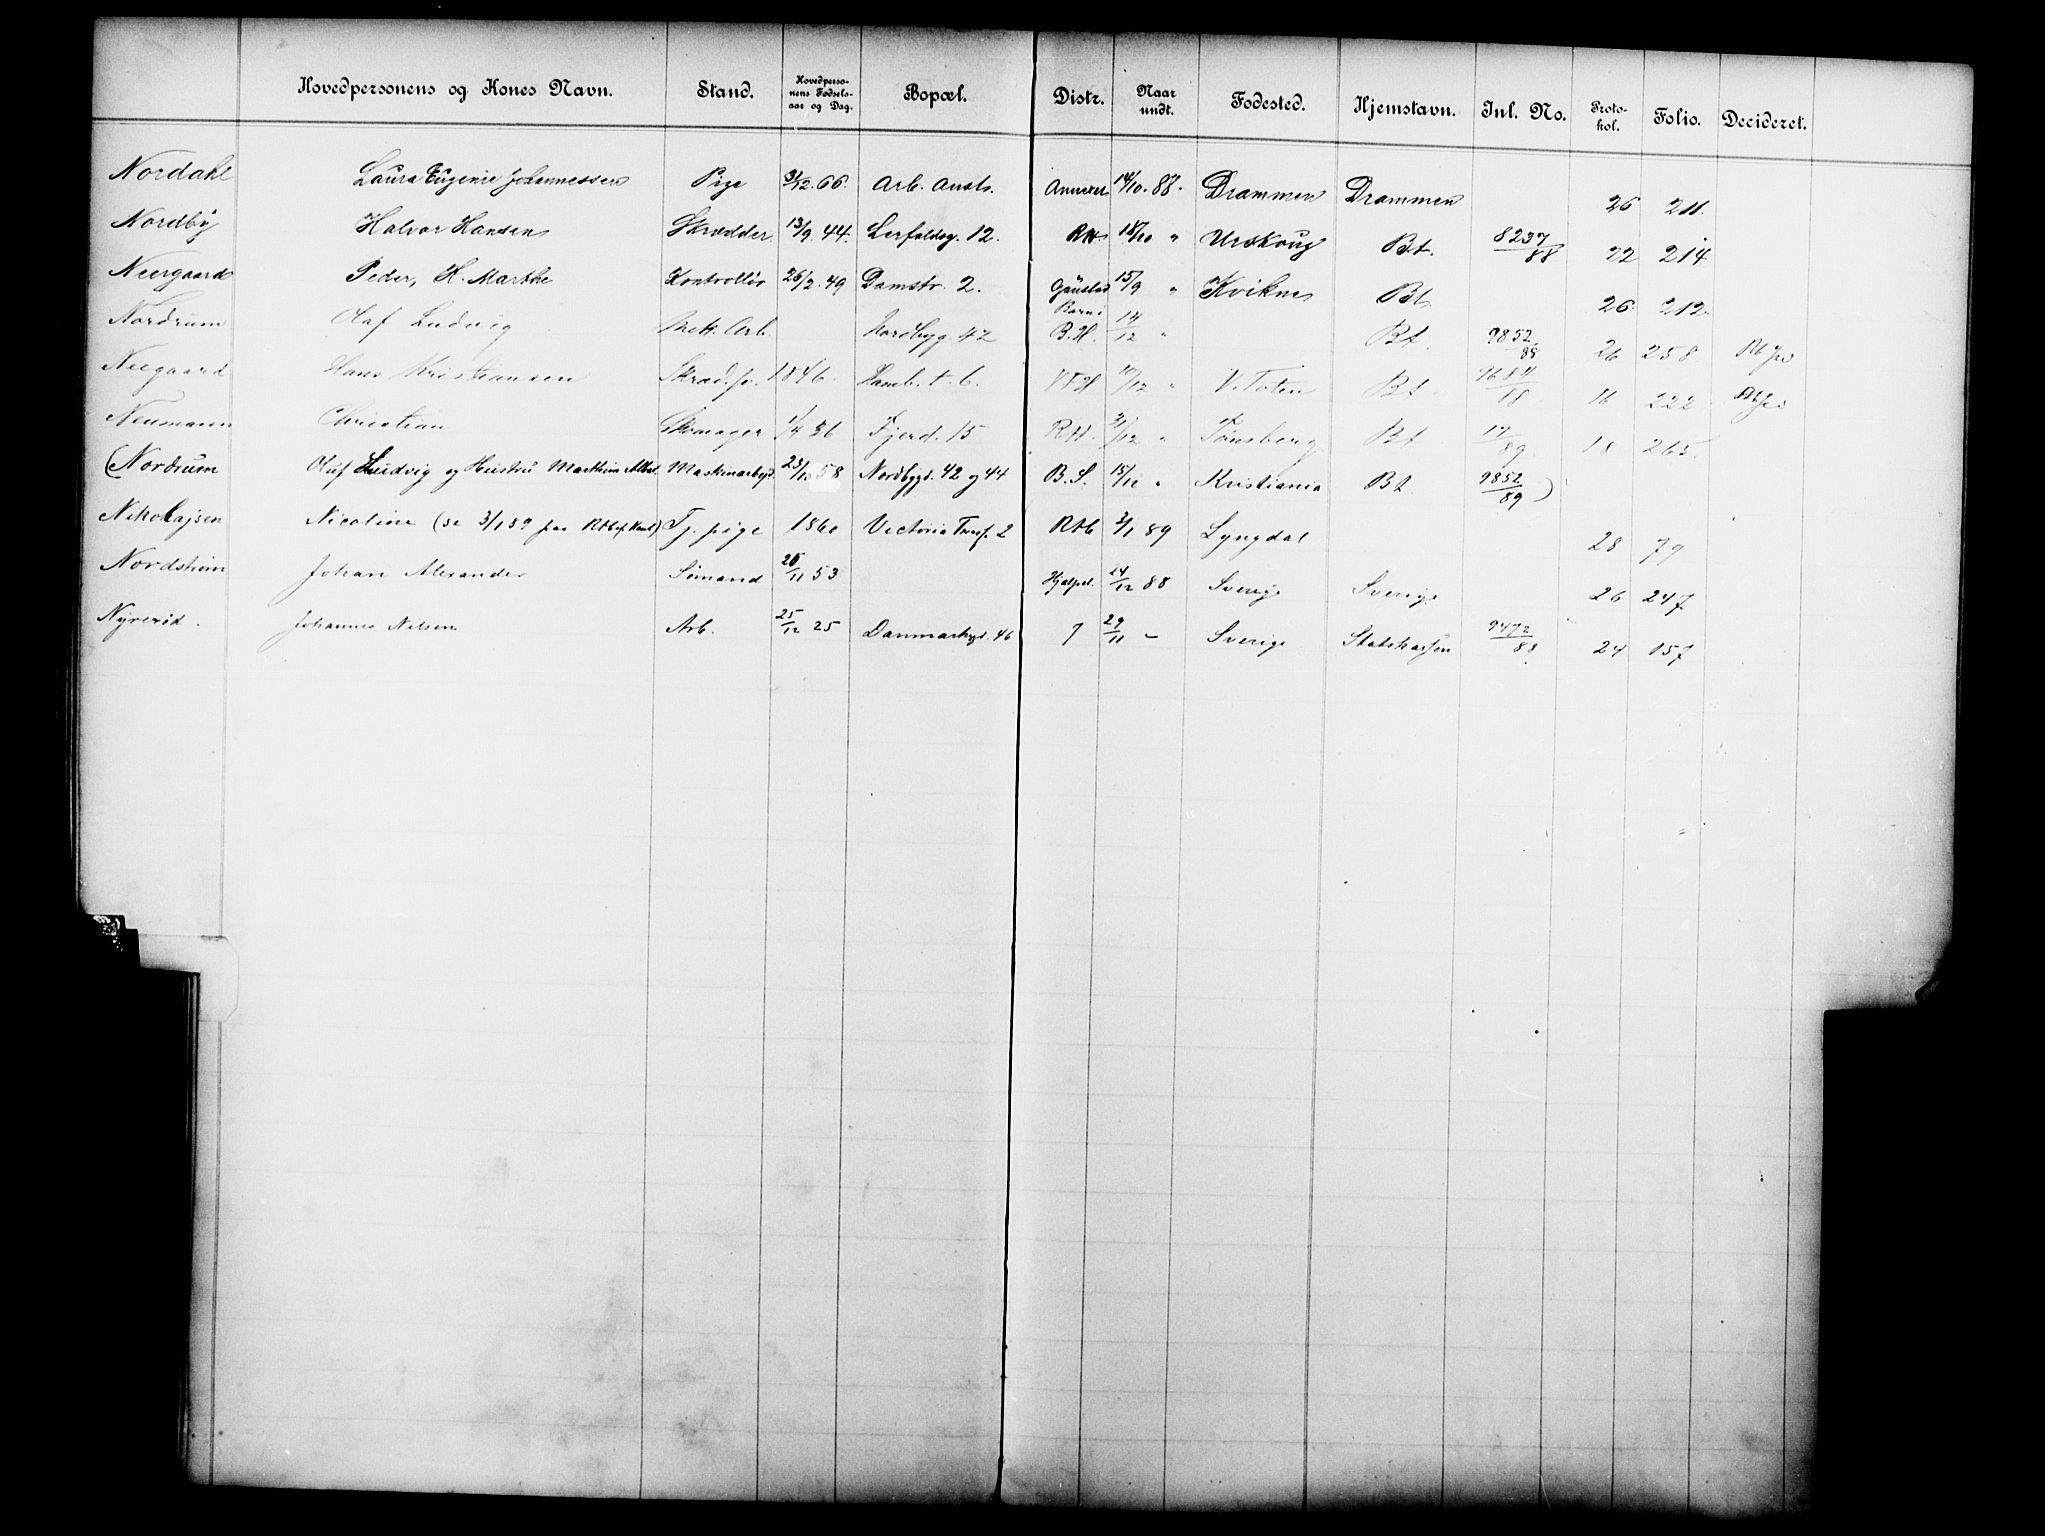 Hovedpersonens og Kones Navn. Stand. Hovedpersonens Fødselsaar og Dag. Bopæl. Distr. Naar undt. Fødested. Hjemstavn. Inl. No. Protokol. Folio. Decideret.
Nordahl Laura Eugenie Johannessen Pige 31/12. 66. Arb. Anst. Annexet 14/10. 88. Drammen Drammen 26 211.
Nordby Halvor Hansen Skrædder 13/9. 44. Lerfaldsg. 12. RH 15/10 " Urskoug Bt. 8237/88 22 214
Neergaard Peder, H. Marthe Kontrollør 26/2. 49 Damstr. 2. Gaustad 15/9 " Kvikne Bt. 26 212.
Nordrum Olaf Ludvig Mek. Arb. Nordbyg. 42 B.H. 14/12 " Bt. 9852/88 26 258
Neegaard Hans Kristiansen 1846. 6. 10/12 " V. Toten Bt 9684/88 16 222
Neumann Christian Skomager 1/4 36 Fjerd. 15 RH. 31/12 " Tønsberg Bt 17/89 18 265.
(Nordrum Oluf Ludvig og Hustru Marthin Maskinarbejd. 23/10 58 Nordbygd. 42 og 44 B.S. 15/12 " Kristiania Bt 9852/89 )
Nikolajsen Nicoline (se 3/1 89 paa Tj. pige 1860 Victoria Terr. 2 RH 3/1 89 Lyngdal 28 79
Nordstrøm Johan Alexander Sømand 26/11 53 Hjælpel. 24/12 88 Sverige Sverige 26 247
Nyrerød. Johannes Nilsen Arb. 25/12 25 Danmarksgd. 46 7 29/11 - Sverige Statskassen 9472/88. 24 157